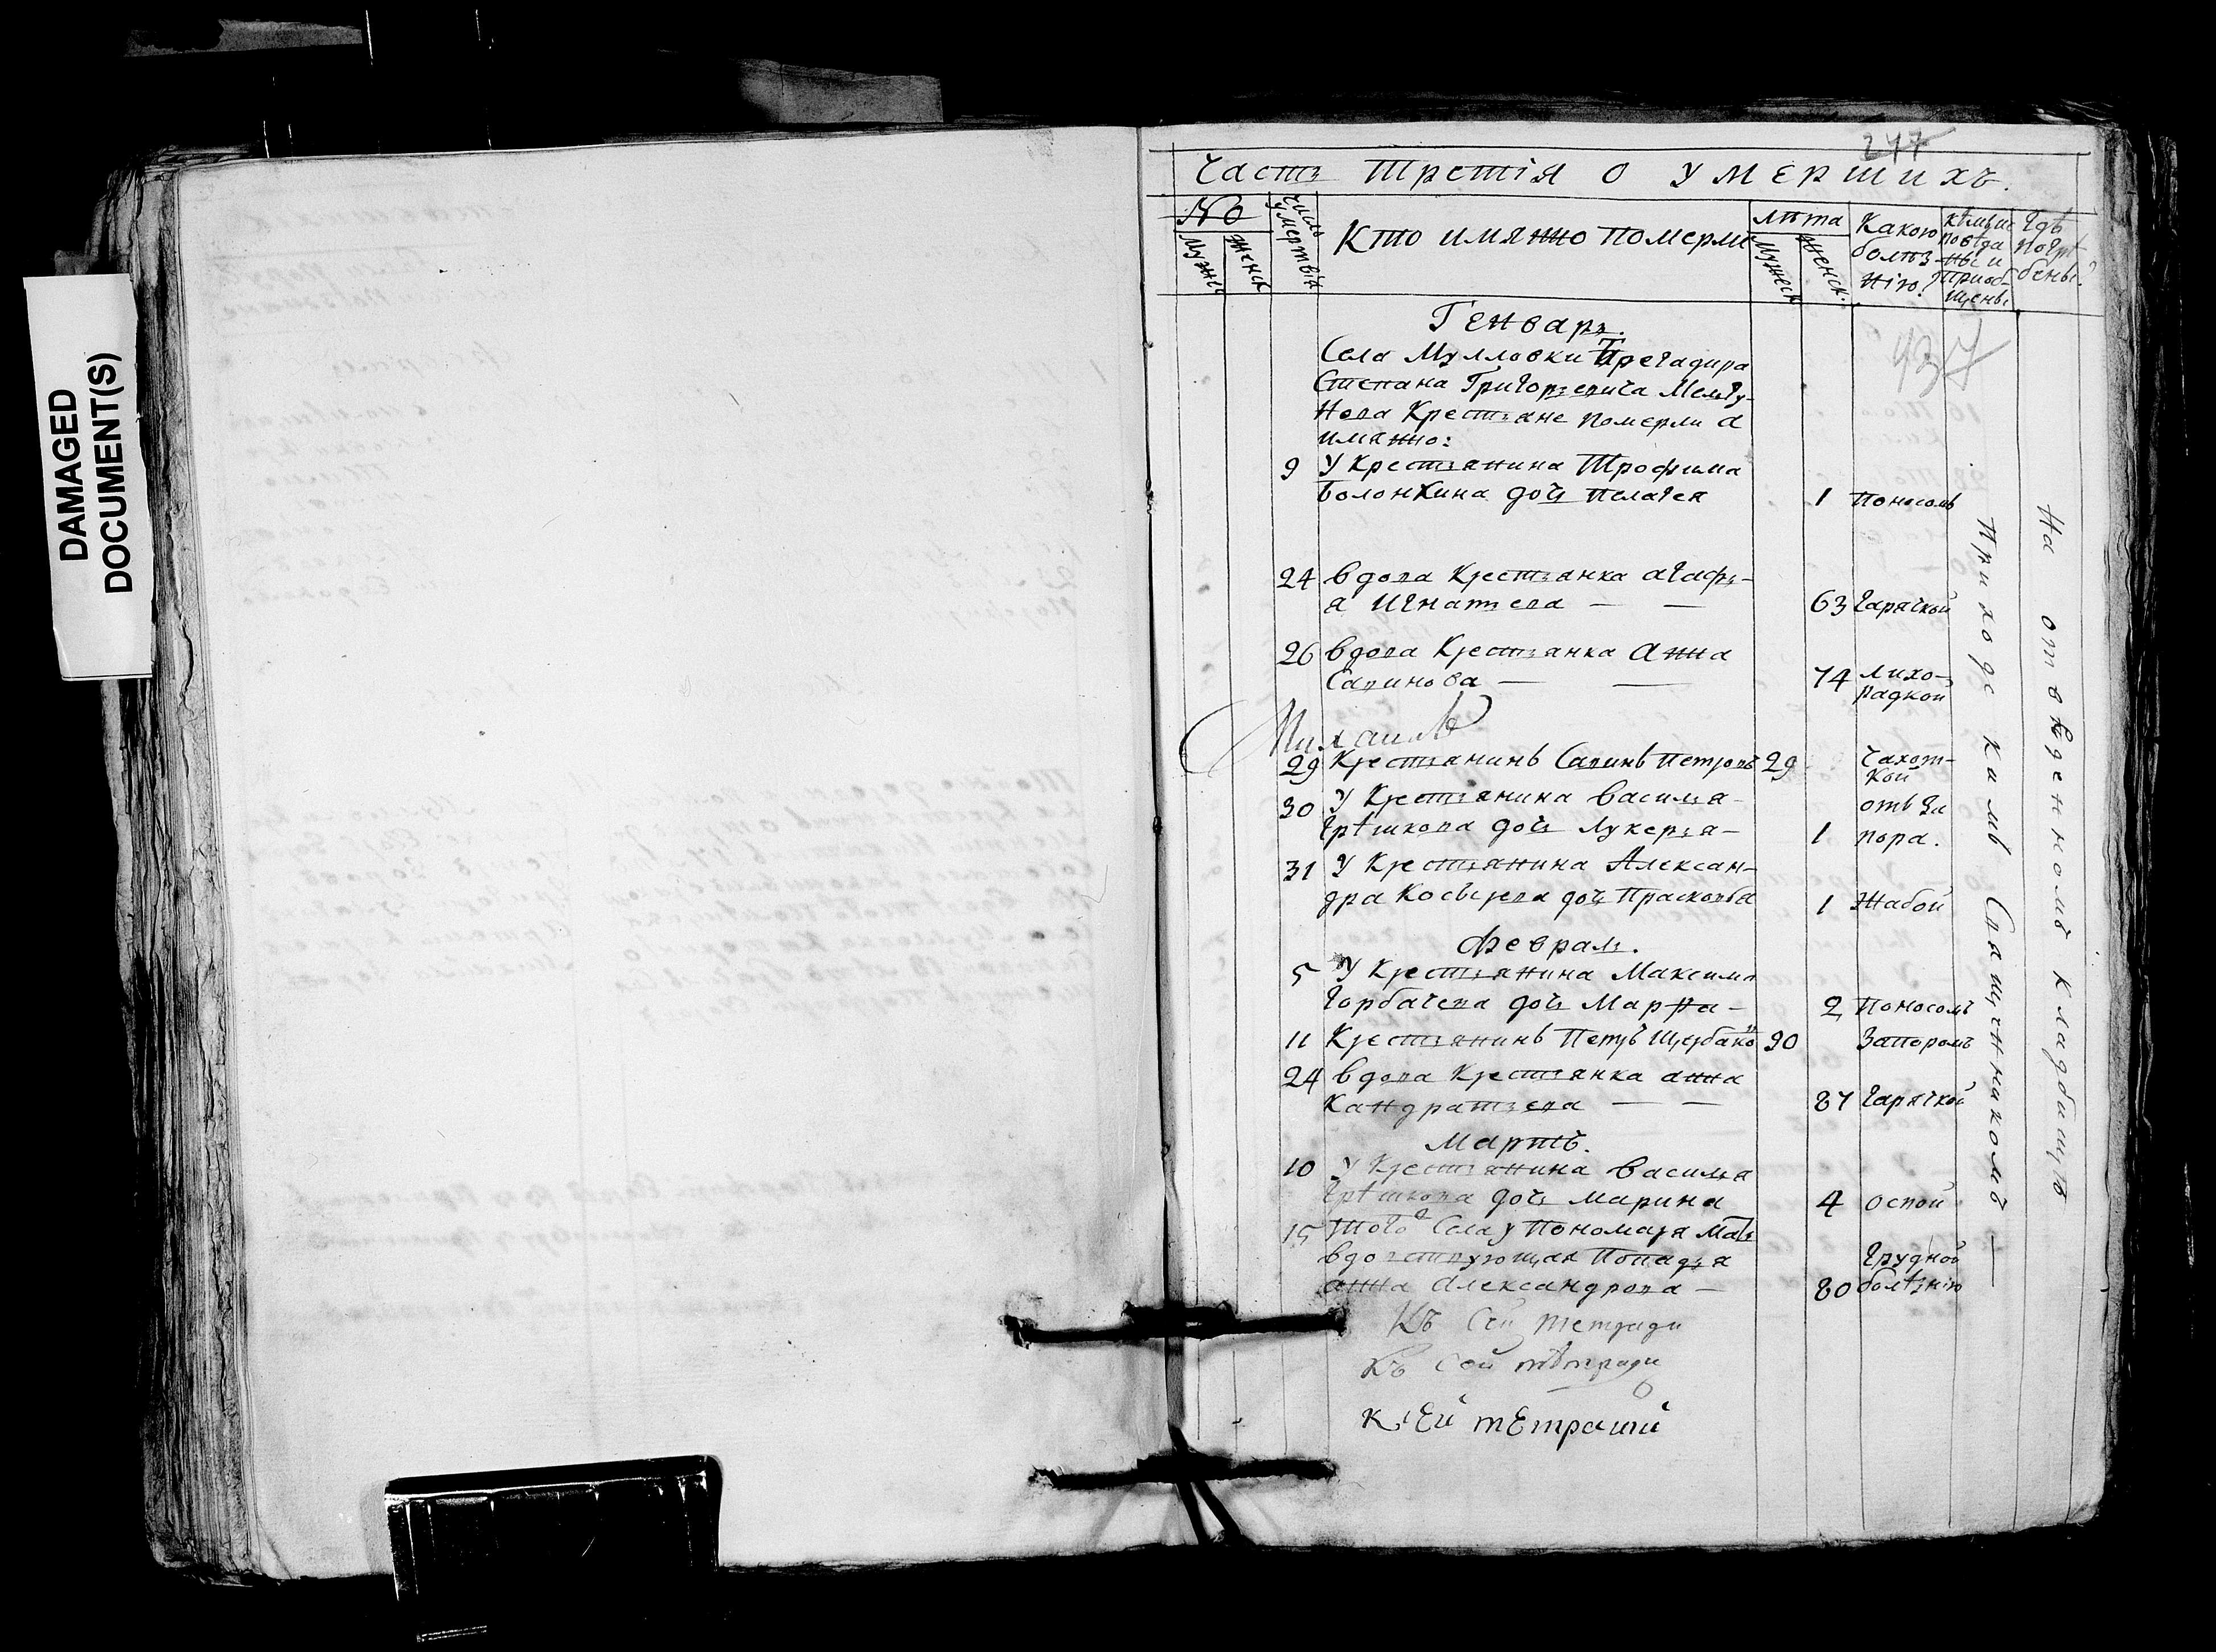 DAMAGED
DOCUMENT(S)
247
Часть третія о умершихъ.
№
Мужеск
Женск
Число умертвія
Кто имянно померли
лѣта
Мужеск
Женск.
Какою
болѣз-
нію?
кѣмъ ис
повѣда
ны и
приоб-
щены
Гдѣ
погре
бены?
437
Генварь.
Села Мулловки Брегадира
Степана Григорьевича Мельгу-
нова Крестьяне померли а
имянно:
9 У Крестьянина Трофима
Болонкина дочь Пелагея 1 Поносомъ
24 вдова Крестьянка агафь-
я Игнатьева — — 63 Гарячкой
26 вдова Крестьянка Анна
Савинова — — 74 лихо-
радкой
Михаилъ
29 Крестьянинъ Савинъ Петровъ 29 Чахот-
кой
30 У Крестьянина Василья
Грѣшнова дочь Лукерья — 1 отъ За
пора.
31 У Крестьянина Алексан-
дра Косырева дочь Прасковья 1 Жабой
Февраль.
5 У Крестьянина Максима
Горбачева дочь Марфа — 2 Поносомъ
11 Крестьянинъ Петръ Щербако 90 Запоромъ
24 вдова Крестьянка анна
Кандратьева — — 87 Гарячкой
Мартъ.
10 У Крестьянина Василья
Грѣшнова дочь Марина 4 оспой
15 того Села у Пономаря Мать
вдовствующая Попадья
анна Александрова — 80 Грудной
болѣзнію
Приходскимъ Священникомъ —
На отведенномъ кладбищѣ
Къ Сей тетради
Къ сей тетради
К сЕй тЕтраши